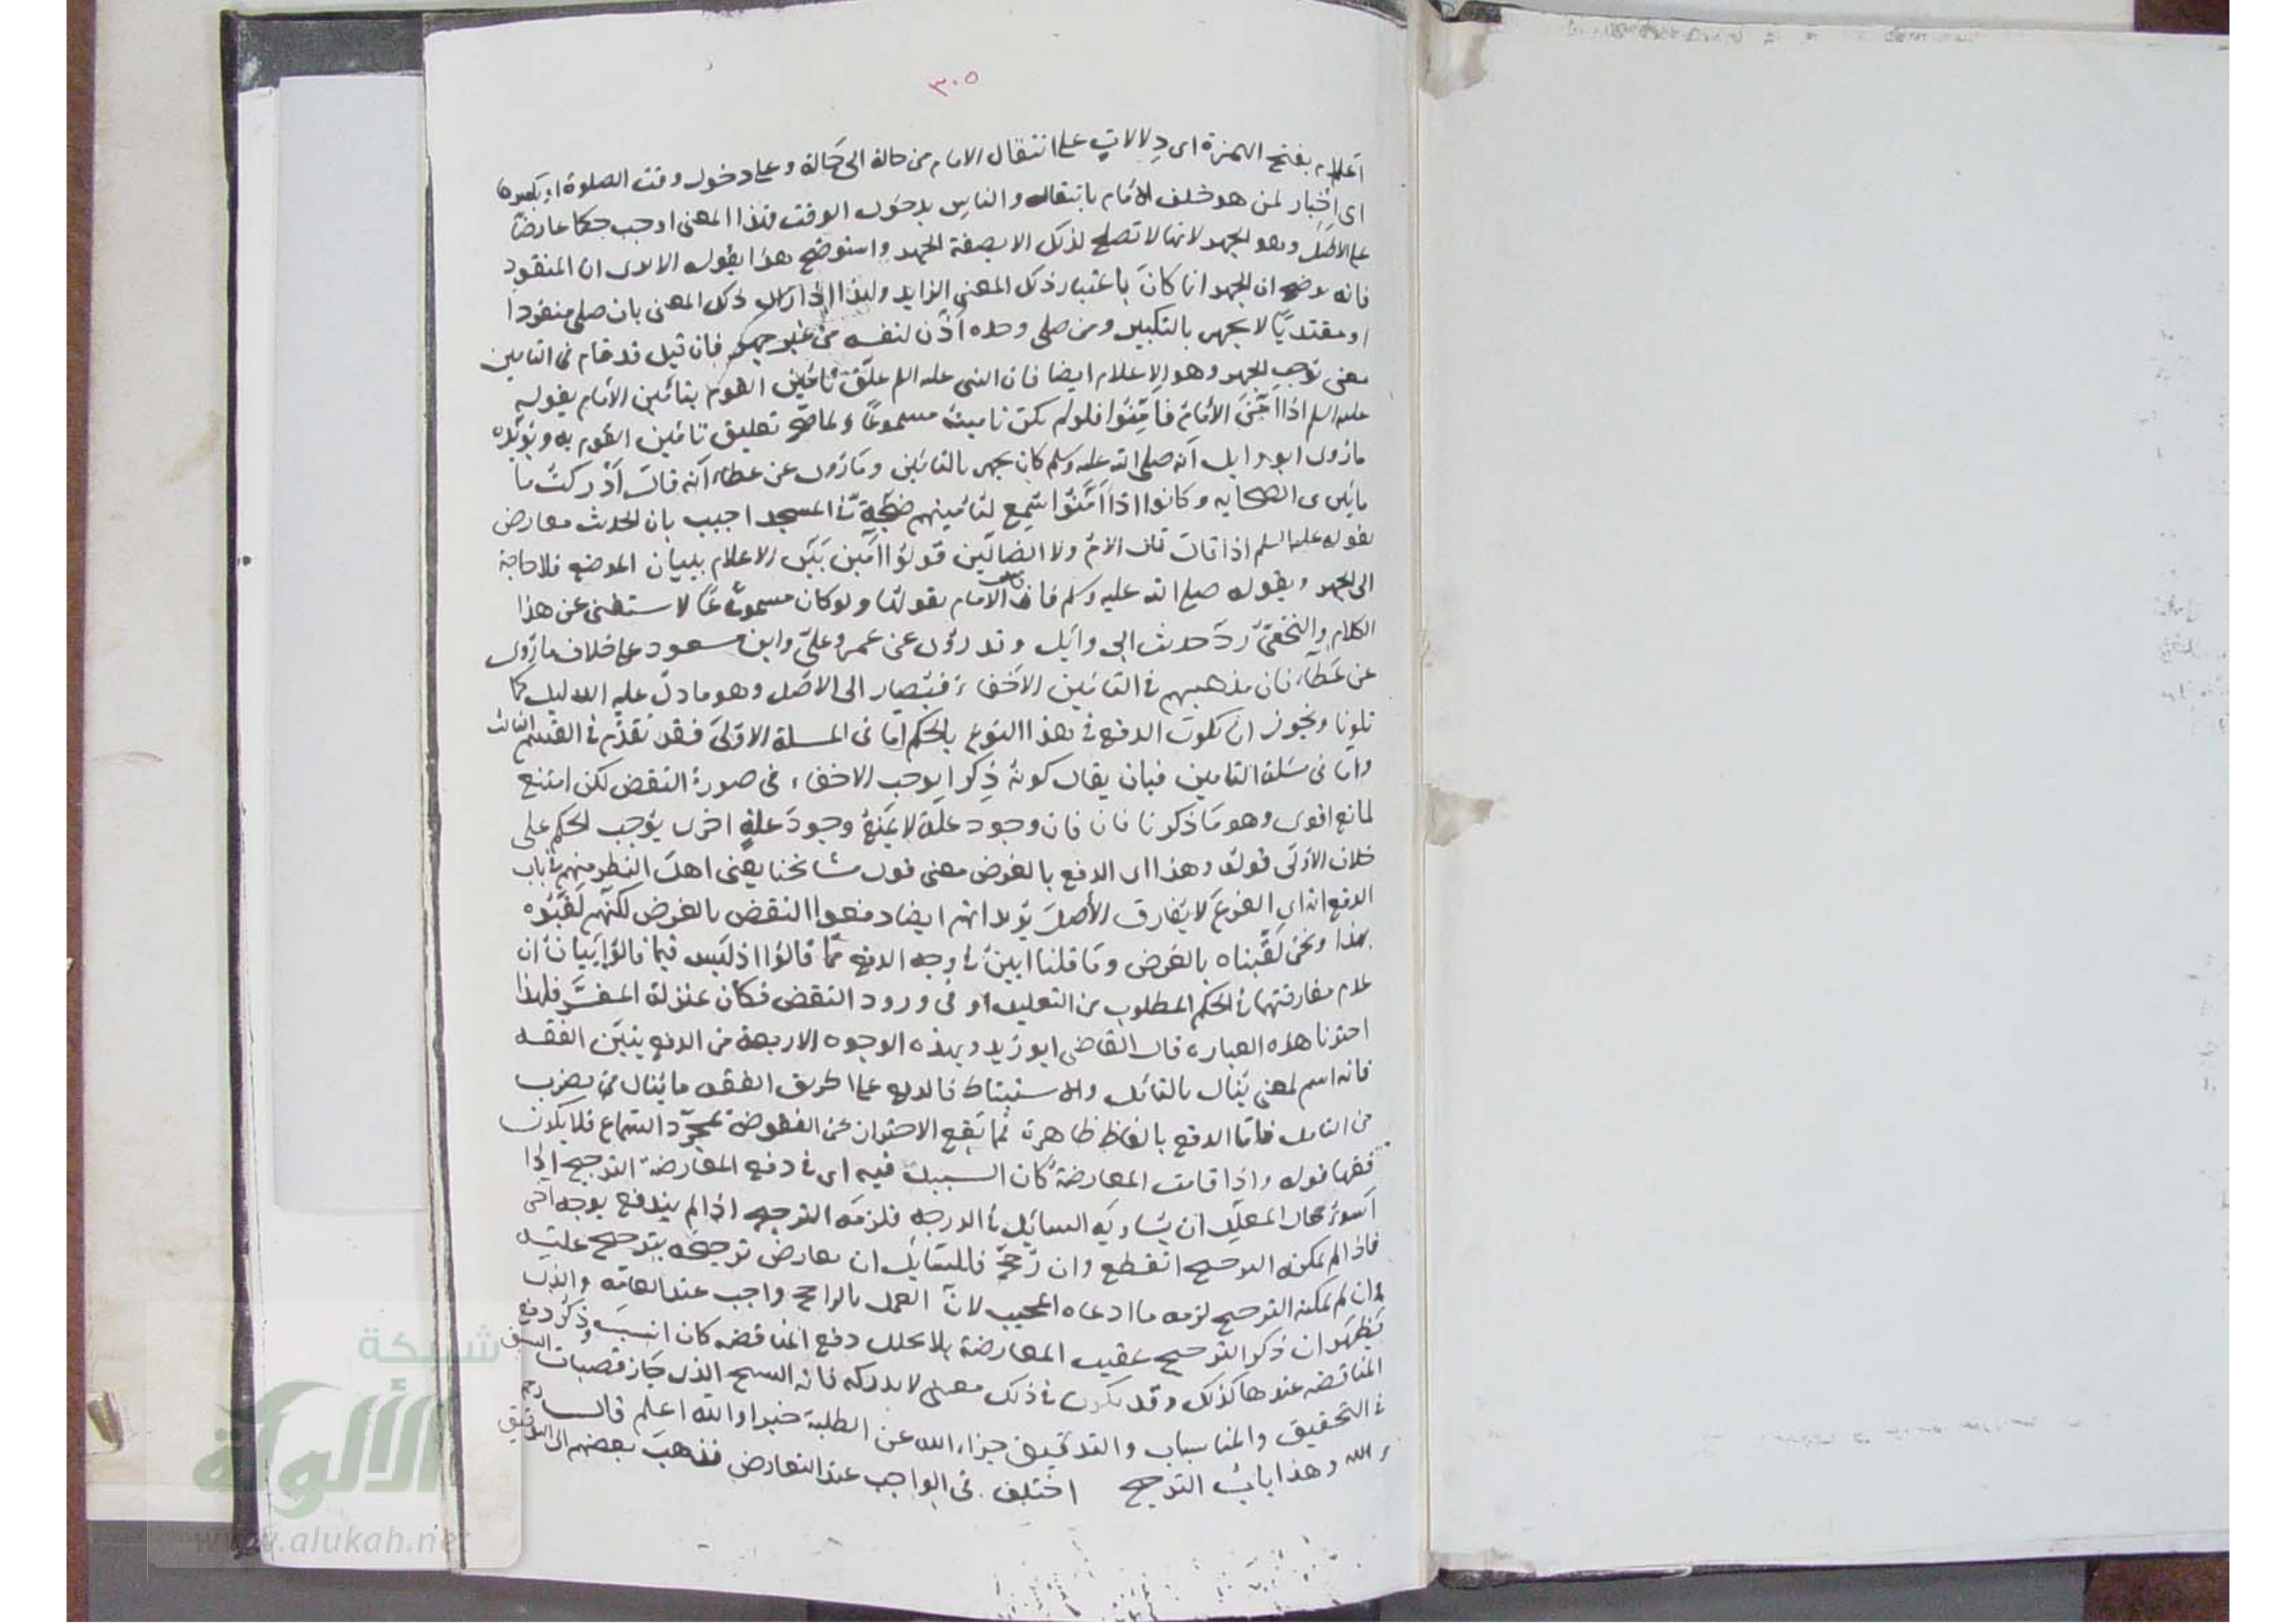 ٣٠٥
اعلام بفتح الهمزة اى دلالات على انتقال الامام من حالة الى حالة وعلى دخول وقت الصلوة او بكسرها
اى اخبار لمن هو خلف الامام بانتقاله والناس بدخول الوقت فهذا المعنى اوجب حكما عارضا
على الاصل وهو الجهر لانها لا تصلح لذلك الا بصفة الجهر واستوضح هذا بقوله الا يرى ان المنفرد
فانه يوضح ان الجهر انما كان باعتبار ذلك المعنى الزايد ولهذا اذا زال ذلك المعنى بان صلى منفردا
او مقتديا لا يجهر بالتكبير ومن صلى وحده اذن لنفسه من غير جهر فان قيل قد قام فى التامين
معنى توجب الجهر وهو الاعلام ايضا فان النبى عليه السلم علق تامين القوم بتامين الامام بقوله
عليه السلم اذا امن الامام فامنوا فلو لم يكن تامينه مسموعا لما صح تعليق تامين القوم به ويؤيده
ما روى ابو وايل انه صلى الله عليه وسلم كان يجهر بالتامين وما روى عن عطاء انه قال ادركت ما
مايتين ى الصحابه وكانوا اذا امنوا سمع لتامينهم ضجة فى المسجد اجيب بان الحديث معارض
بقوله عليه السلم اذا قال الامام ولا الضالين قولوا امين بين الاعلام ببيان الموضع فلا حاجة
الى الجهر وبقوله صلى الله عليه وسلم فان الامام يقولها ولو كان مسموعا لاستغنى عن هذا
الكلام والنخعى رد حديث ابى وايل وقد روى عن عمر وعلى وابن مسعود على خلاف ما روى
عن عطاء فان مذهبهم فى التامين الاخفاء فيصار الى الاصل وهو ما دل عليه الدليل كما
تلونا ويجوز ان يكون الدفع فى هذا النوع بالحكم اما فى المسلة الاولى فقد تقدم فى القسم الثالث
واما فى مسئلة التامين فبان يقال كونه ذكرا يوجب الاخفاء فى صورة النقض لكن امتنع
لمانع اقوى وهو ما ذكرنا فان وجود علة لا يمنع وجود علة اخرى يوجب الحكم على
خلاف الاولى قوله وهذا اى الدفع بالغرض معنى قول مشايخنا يعنى اهل النظر منهم فى باب
الدفع انه اى الفرع لا يفارق الاصل يريد انهم ايضا دفعوا النقض بالغرض لكنهم لقبوه
بهذا ونحن لقبناه بالغرض وما قلنا ابين فى وجه الدفع مما قالوا اذ ليس فيما قالوا بيان ان
عدم مفارقتهما فى الحكم المطلوب من التعليل او فى ورود النقض فكان بمنزلة المفسر فلهذا
اخترنا هذه العباره قال القاضى ابو زيد وبهذه الوجوه الاربعة من الدفع يتبين الفقه
فانه اسم لمعنى ينال بالتامل والاستنباط فالدفع على طريق الفقه ما ينال من بضرب
من التامل فاما الدفع بالفاظ ظاهرة فما يقع الاحتراز عن النقوض بمجرد السماع فلا يكون
فقها قوله واذا قامت المعارضة كان السبيل فيه اى فى دفع المعارضة الترجيح اذا
اسوء حال المعلل ان يساويه السايل فى الدرجه فلزمه الترجيح اذا لم يندفع بوجه اخر
فاذا لم يمكنه الترجيح انقطع وان رجح فللسايل ان يعارض ترجيحه بترجيح عليه
فان لم يمكنه الترجيح لزمه ما ادعاه المجيب لان العمل بالراجح واجب عند العامه والذى
يظهر ان ذكر الترجيح عقيب المعارضة بلا تخلل دفع المناقضه كان انسب وذكر دفع
المناقضه عندها كذلك وقد يكون فى ذلك معنى لا ندركه فانه الشيخ الذى حاز قصبات السبق
فى التحقيق والمناسبات والتدقيق جزاه الله عن الطلبة خيرا والله اعلم قال رحمه
الله وهذا باب الترجيح اختلف فى الواجب عند التعارض فذهب بعضهم الى التوقيف
شبكة
الألوكة
www.alukah.net